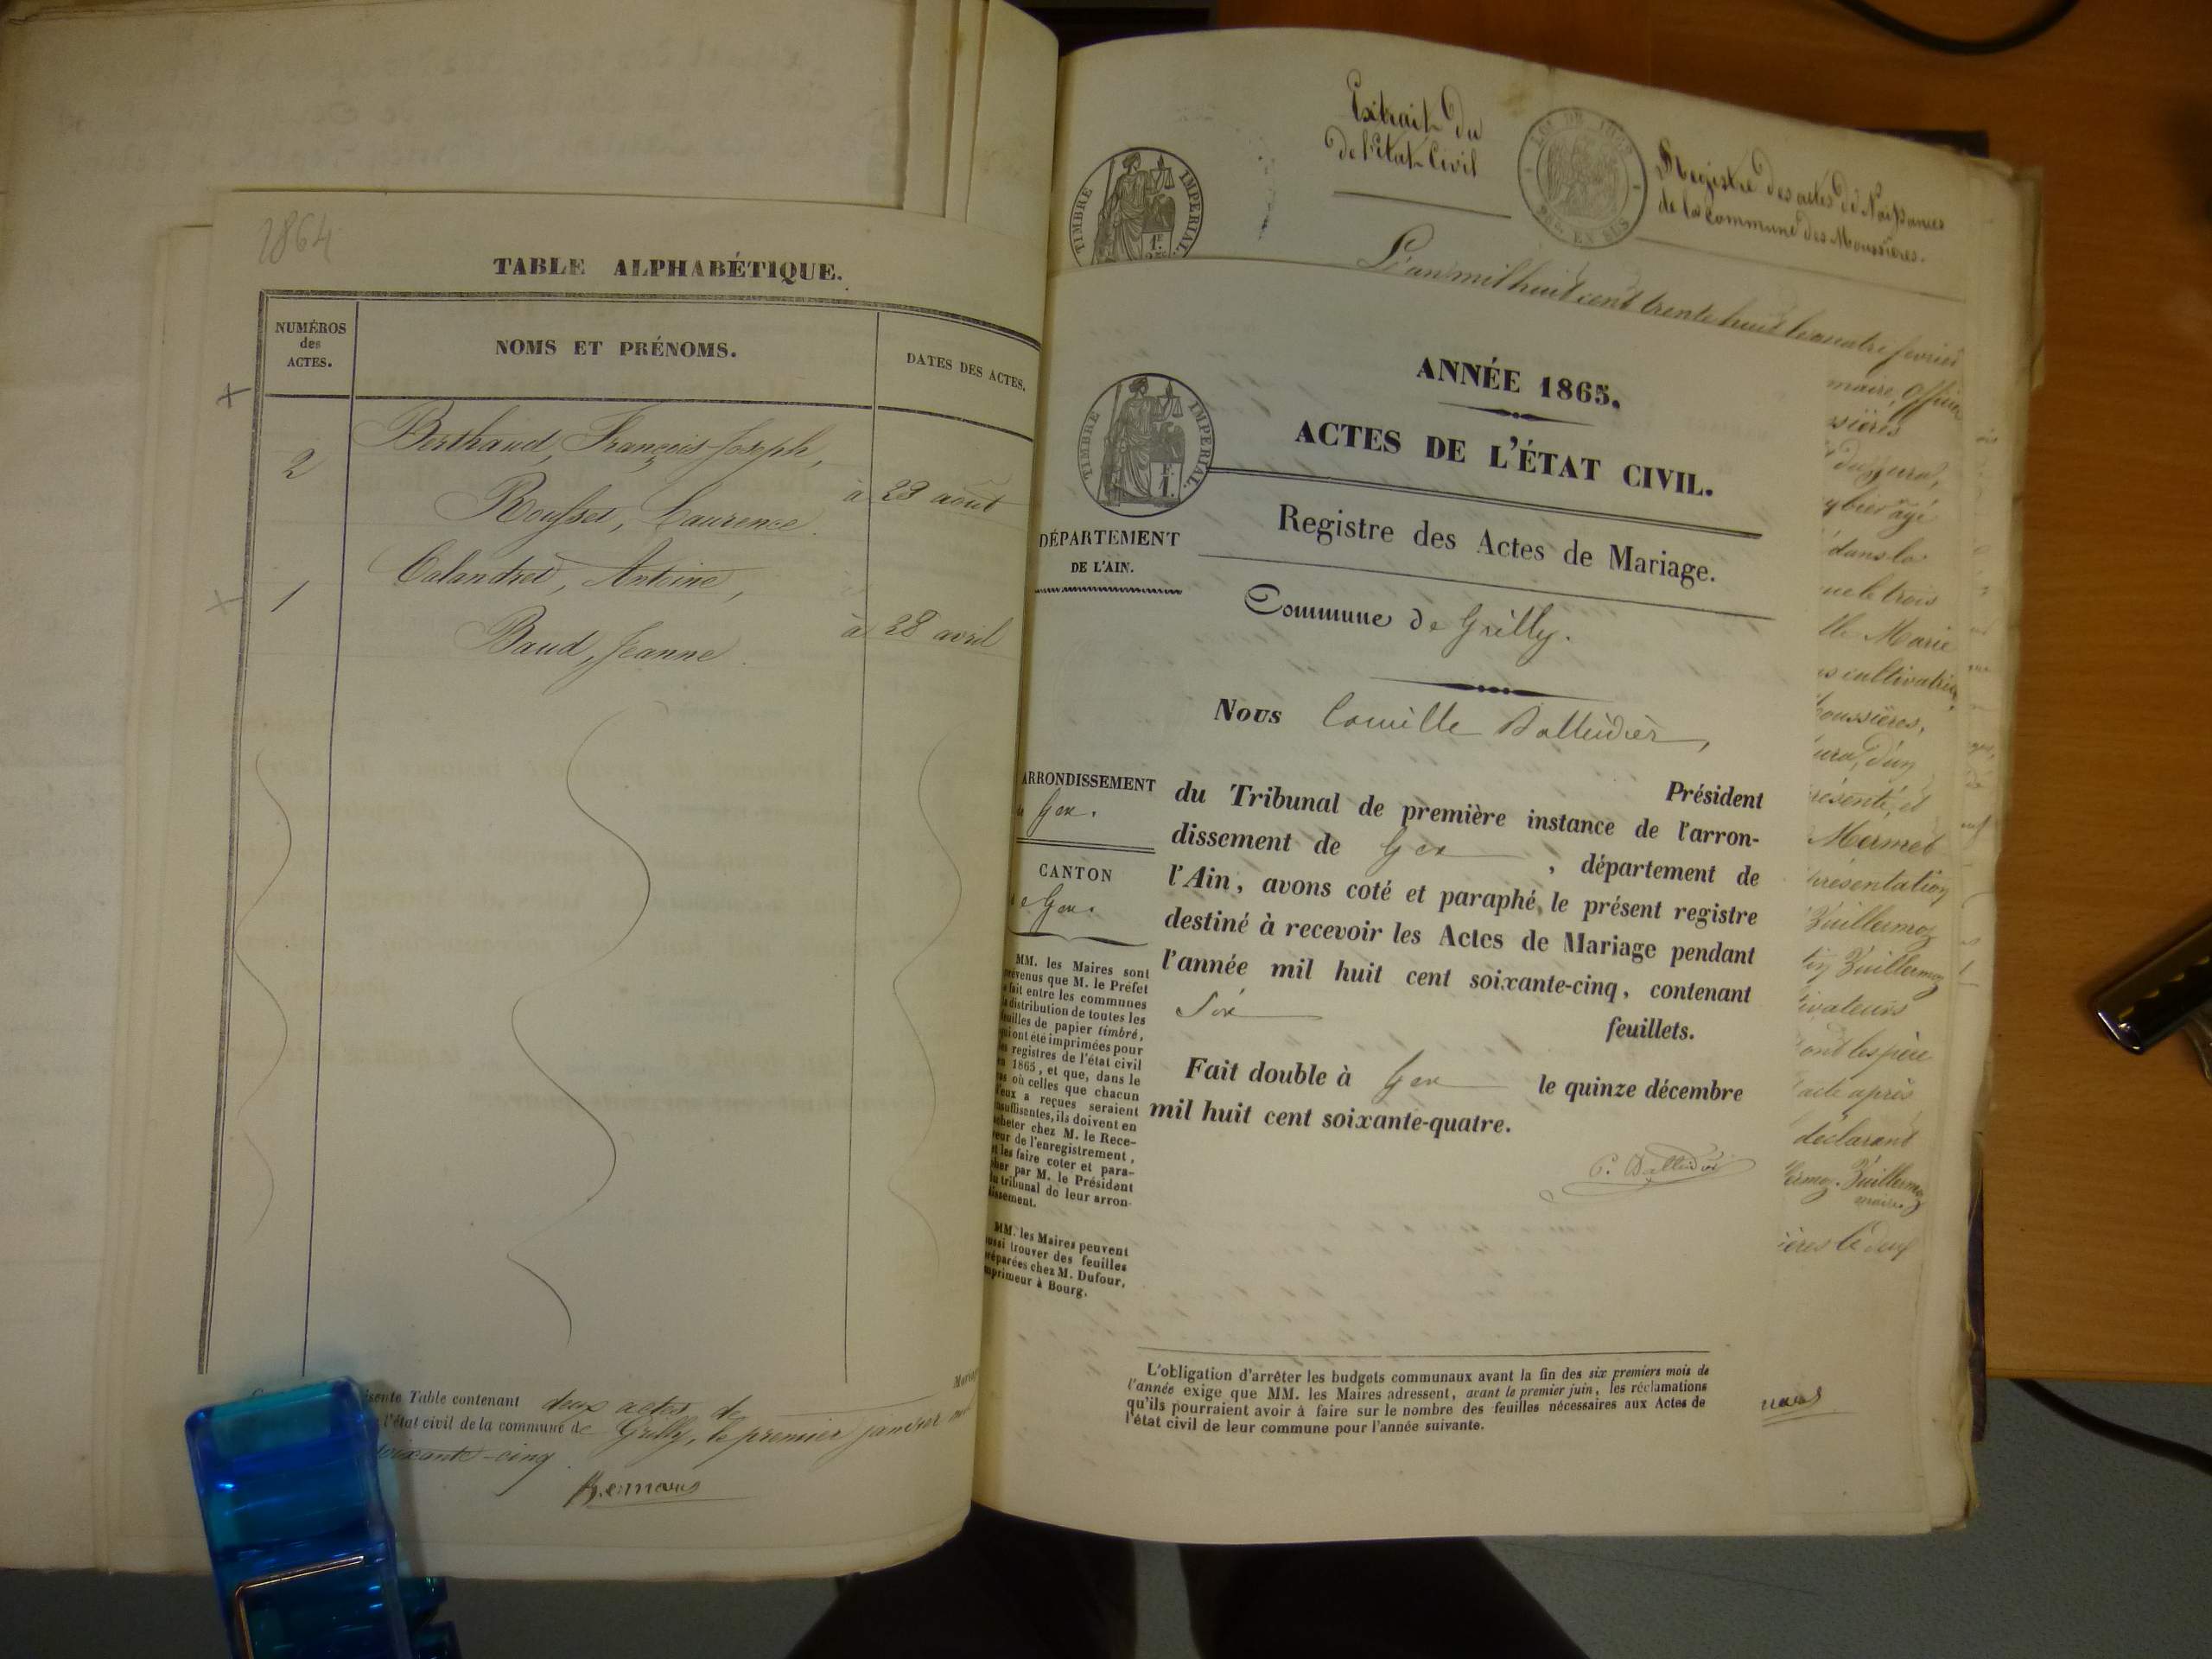 1864
TABLE ALPHABÉTIQUE.
NUMÉROS
des
ACTES.
NOMS ET PRÉNOMS.
DATES DES ACTES.
Berthaud, François-Joseph,
2
à 23 août
Rousset, Laurence.
Calandret, Antoine,
1
à 28 avril
Baud, Jeanne.
sente Table contenant deux actes de
l'état civil de la commune de Grilly, le premier janvier
soixante-cinq.
Extrait du
de l'État Civil
Registre des actes de Naissances
de la Commune des Moussières.
TIMBRE IMPERIAL
L'an mil huit cent trente huit le quatre février
ANNÉE 1865.
TIMBRE IMPERIAL
ACTES DE L'ÉTAT CIVIL.
Registre des Actes de Mariage.
DÉPARTEMENT
DE L'AIN.
Commune de Grilly.
Nous Camille
Président
ARRONDISSEMENT
Gex.
CANTON
Gex.
du Tribunal de première instance de l'arron-
dissement de Gex, département de
l'Ain, avons coté et paraphé le présent registre
destiné à recevoir les Actes de Mariage pendant
l'année mil huit cent soixante-cinq, contenant
Six
feuillets.
Fait double à Gex le quinze décembre
mil huit cent soixante-quatre.
MM. les Maires sont
prévenus que M. le Préfet
a fait entre les communes
la distribution de toutes les
feuilles de papier timbré,
qui ont été imprimées pour
les registres de l'état civil
en 1865, et que, dans le
cas où celles que chacun
d'eux a reçues seraient
insuffisantes, ils doivent en
acheter chez M. le Rece-
veur de l'enregistrement,
et les faire coter et para-
pher par M. le Président
du tribunal de leur arron-
dissement.
MM. les Maires peuvent
aussi trouver des feuilles
préparées chez M. Dufour,
imprimeur à Bourg.
L'obligation d'arrêter les budgets communaux avant la fin des six premiers mois de
l'année exige que MM. les Maires adressent, avant le premier juin, les réclamations
qu'ils pourraient avoir à faire sur le nombre des feuilles nécessaires aux Actes de
l'état civil de leur commune pour l'année suivante.
maire, Officier
dans la
Marie
cultivatrice
Mermet
Guillermoz
Guillermoz
acte après
déclarant
Guillermoz
maire